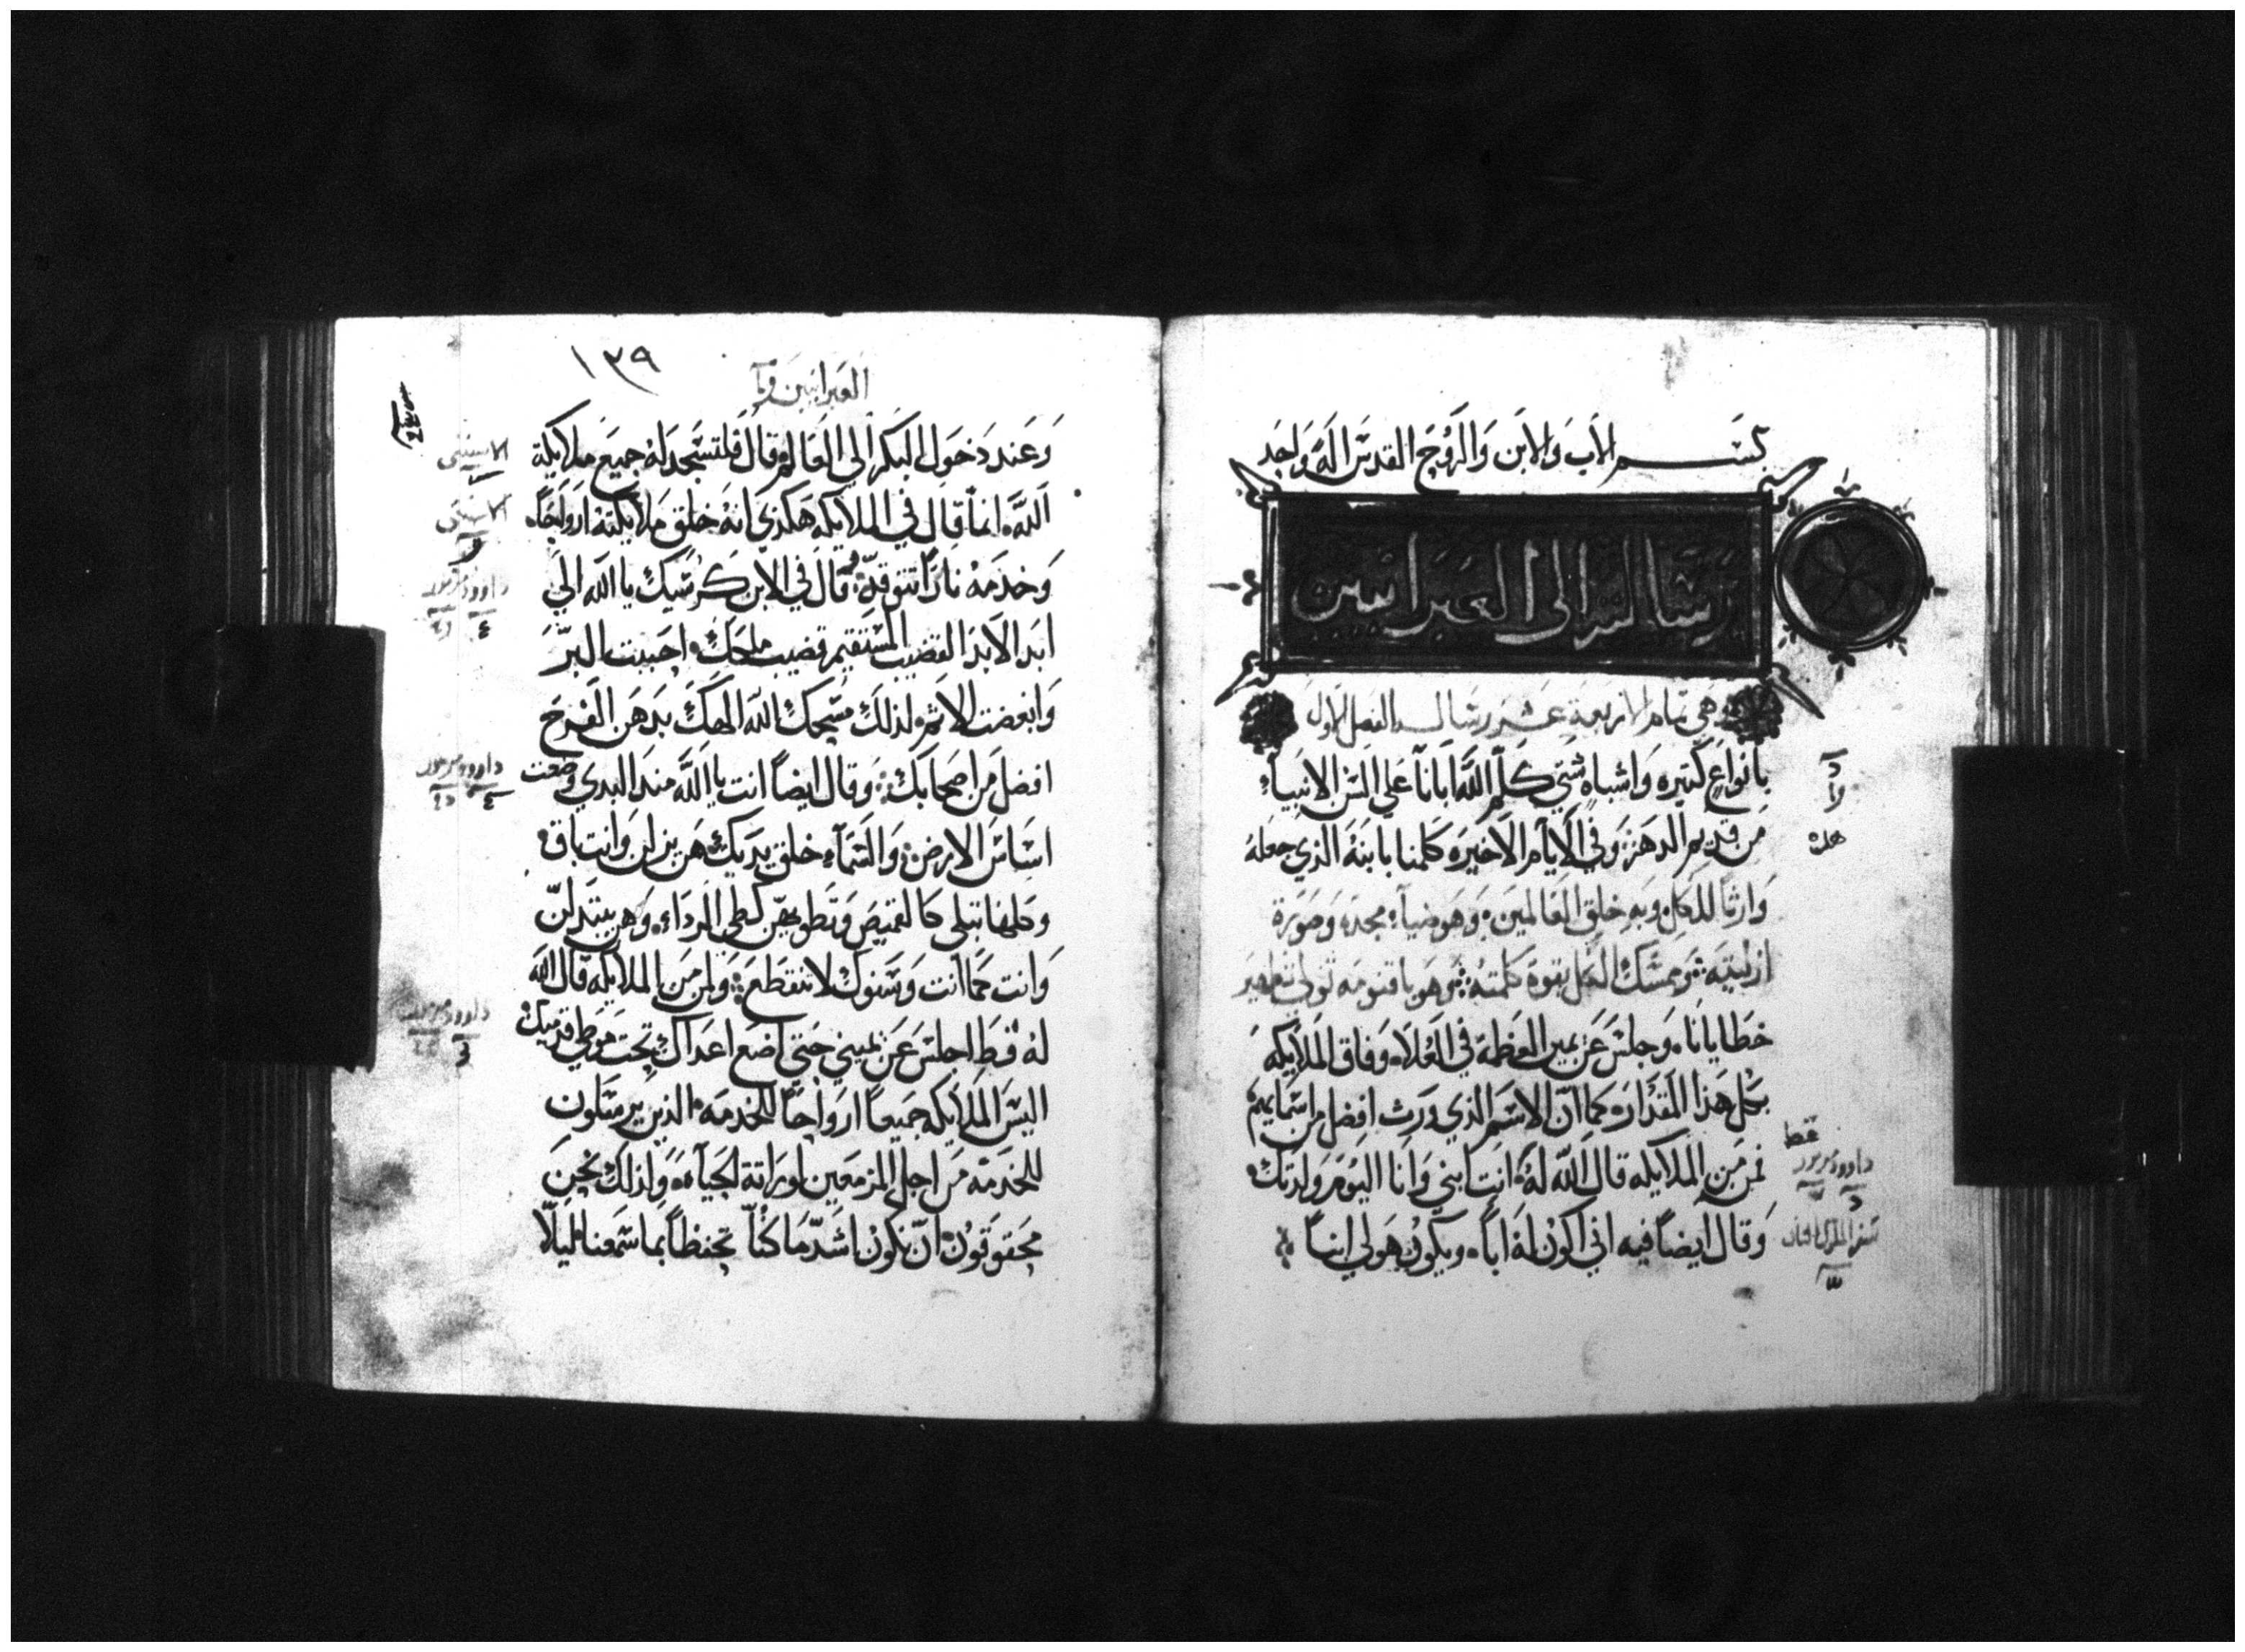 بسم الاب والابن والروح القدس اله واحد
رسالته الى العبرانيين
وهي تمام الاربعة عشر رسالة الفصل الاول
بانواع كتيره واشباه شتي كلم الله ابانا علي السن الانبياء
من قديم الدهر وفي الايام الاخيره كلمنا بابنه الذي جعله
وارثا للكل وبه خلق العالمين وهو ضياء مجده وصورة
ازليته وممسك الكل بقوة كلمته وهو باقنومه تولي تطهير
خطايانا وجلس عن يمين العظمة في العلاء وفاق الملايكه
بكل هذا المقدار كما ان الاسم الذي ورث افضل من اسمايهم
فمن من الملايكه قال الله له انت ابني وانا اليوم ولدتك
وقال ايضا فيه اني اكون له ابا ويكون هو لي ابنا
قط
داوود مزمور
العبرانيين
١٣٩
وعند دخول البكر الي العالم قال فلتسجد له جميع ملايكة
الله انما قال في الملايكه هكذي انه خلق ملايكته ارواحا
وخدمه نارا تتوقد وقال في الابن كرسيك يا الله الي
ابد الابد القضيب المستقيم قضيب ملكك احببت البر
وابغضت الاثم لذلك مسحك الله الهك بدهن الفرح
افضل من اصحابك وقال ايضا انت يا الله منذ البدي وضعت
اساس الارض والسماء خلق يديك هن يزلن وانت باق
وكلها تبلي كالقميص وتطويهن كطي الرداء وهن يتبدلن
وانت كما انت وسنوك لا تنقطع ولمن من الملايكه قال الله
له قط اجلس عن يميني حتي اضع اعداك تحت موطي قدميك
اليس الملايكه جميعا ارواحا للخدمه الذين يرسلون
للخدمه من اجل المزمعين لوراتة الحياه ولذلك نحن
محقوقون ان نكون اشد ما كنا تحفظا بما سمعنا ليلا
داوود مزمور
داوود مزمور
داوود مزمور